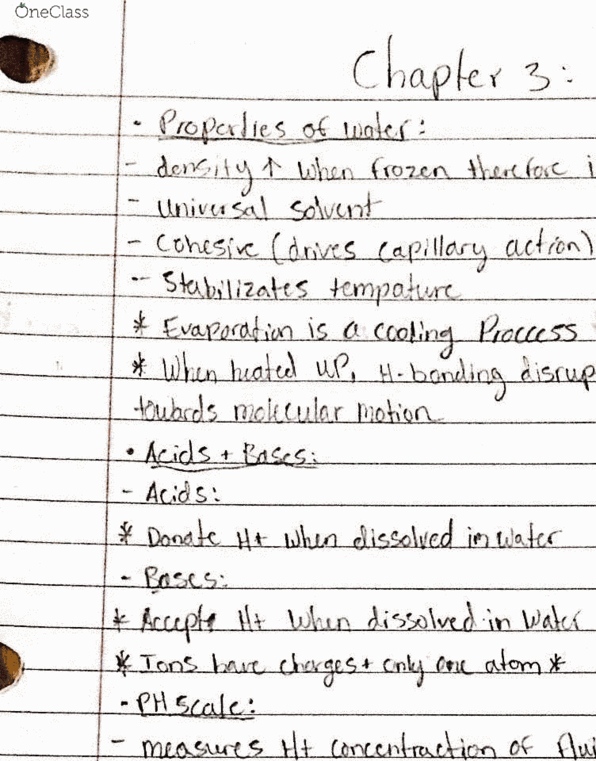 OneClass
Chapter 3:
• Properties of water:
- density ↑ when frozen therefore i
- Universal solvent
- Cohesive (drives capillary action)
-- Stabilizates tempature
* Evaporation is a cooling Proccess
* When heated up, H-bonding disrup
towards molecular motion
• Acids + Bases:
- Acids:
* Donate H+ when dissolved in water
- Bases:
* Accepts H+ when dissolved in water
* Ions have charges + only one atom *
• PH scale:
- measures H+ concentration of flui